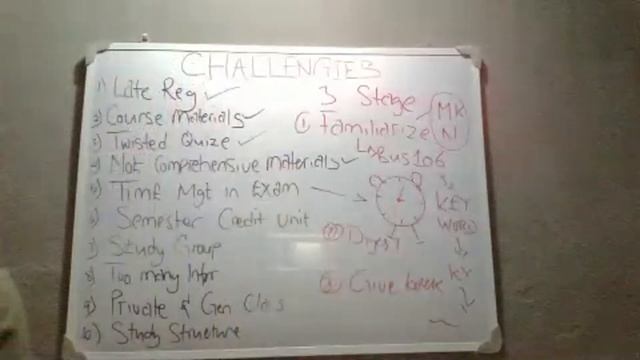 CHALLENGIES
1) Late Reg ✓
2) Course Materials ✓
3) Twisted Quize ✓
4) Not Comprehensive Materials ✓
5) Time Mgt in Exam
6) Semester Credit Unit
7) Study Group
8) Too many Infor
9) Private & Gen Class
10) Study Structure
3 Stage
① Familiarize
MK
N
Bus106
KEY
WORD
② Digest
③ Give back